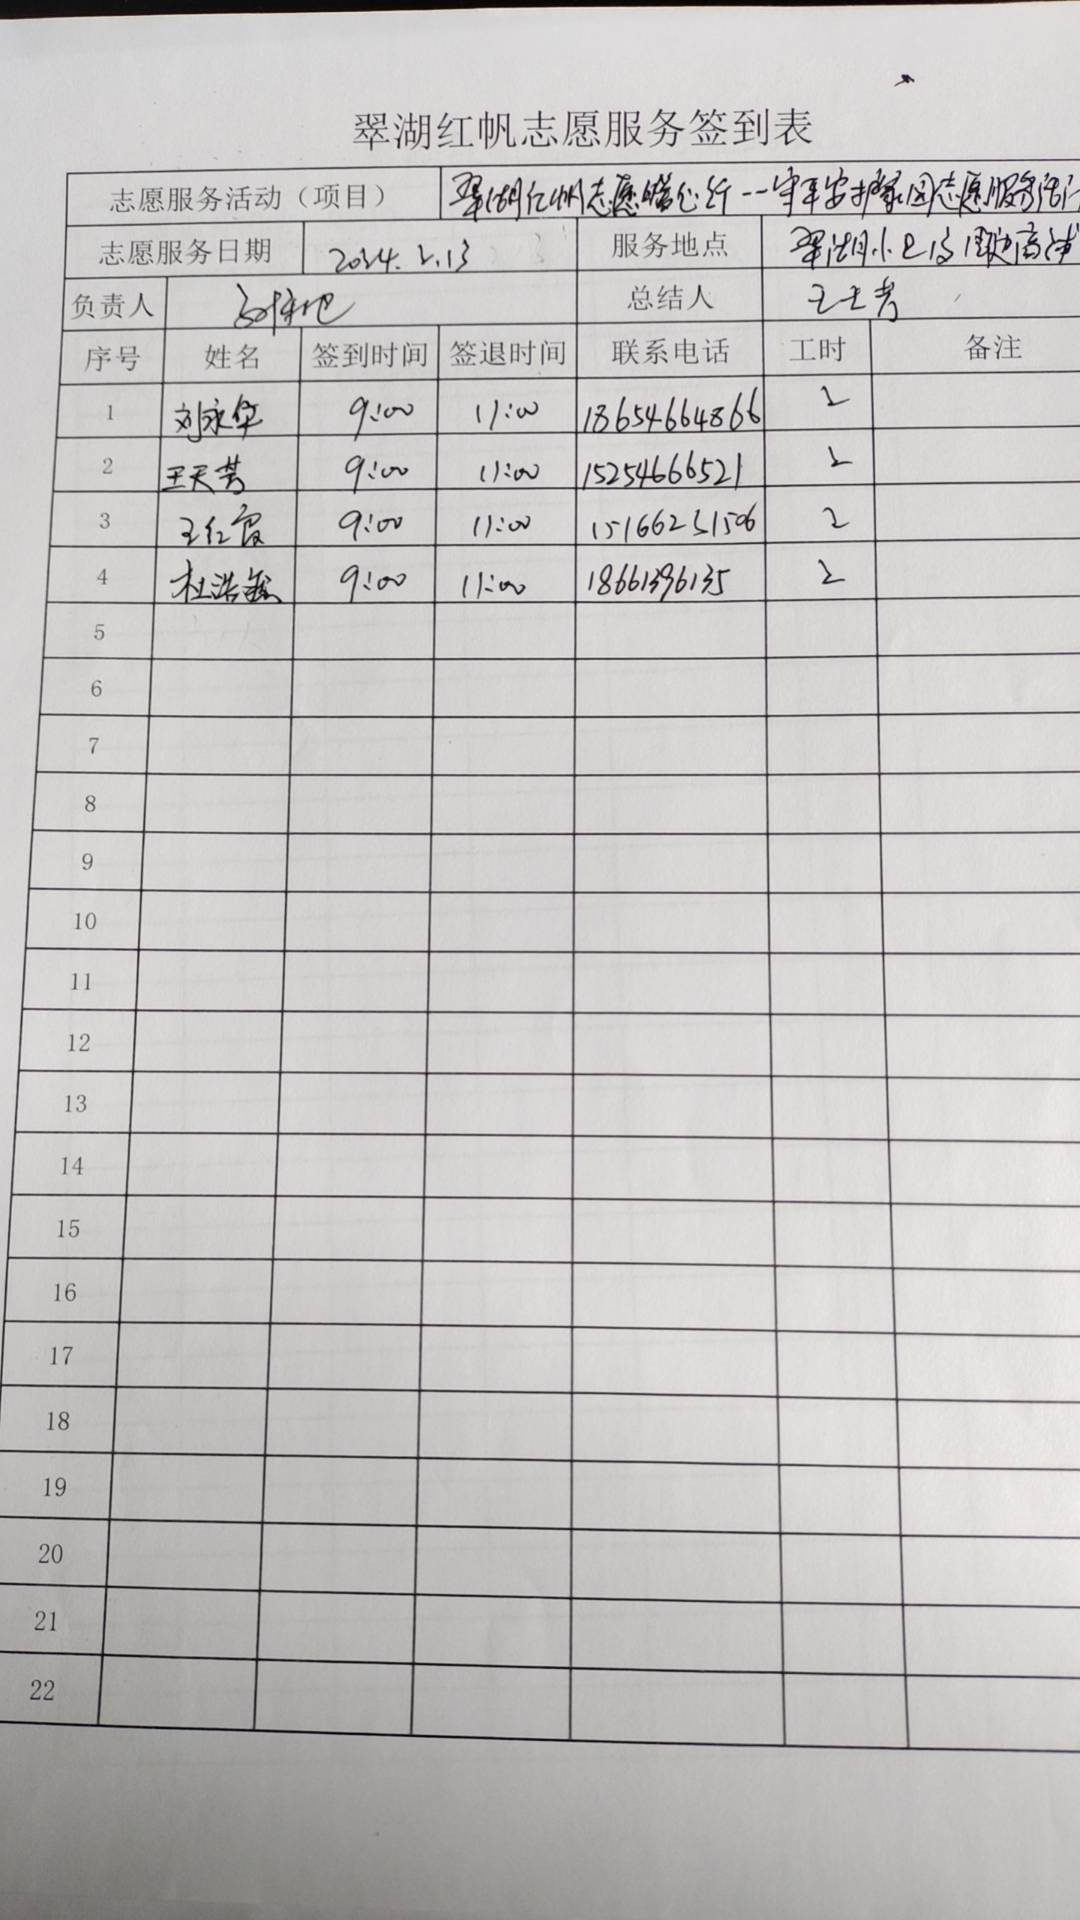 翠湖红帆志愿服务签到表
志愿服务活动（项目） 翠湖红帆志愿暖心行--守平安护家园志愿服务活动
志愿服务日期 2024.2.13 服务地点 翠湖小区及周边商铺
负责人 总结人 王天芳
序号 姓名 签到时间 签退时间 联系电话 工时 备注
1 刘永华 9:00 11:00 18654664866 2
2 王天芳 9:00 11:00 15254666521 2
3 王红霞 9:00 11:00 15166251506 2
4 杜浩 9:00 11:00 18661396135 2
5
6
7
8
9
10
11
12
13
14
15
16
17
18
19
20
21
22